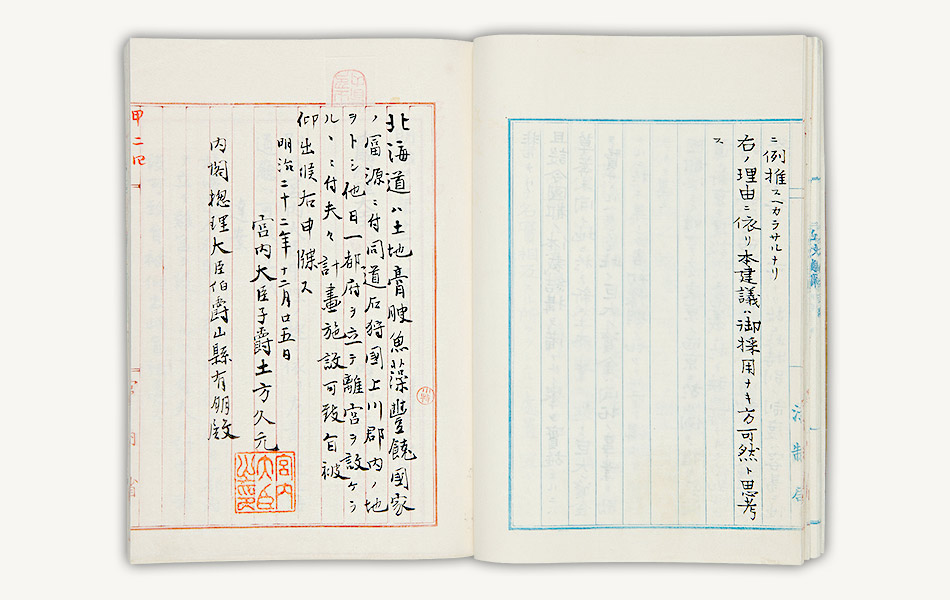 ニ例推スヘカラサルナリ
右ノ理由ニ依リ本建議ハ御採用ナキ方可然ト思考
ス
法制局
北海道ハ土地膏腴魚藻豊饒国家
ノ富源ニ付同道石狩国上川郡内ノ地
ヲトシ他日一都府ヲ立テ離宮ヲ設ケラ
ルヽニ付夫々計畫施設可致旨被
仰出候右申牒ス
明治二十二年十二月廿五日
宮内大臣子爵土方久元
宮内大臣之印
内閣総理大臣伯爵山縣有朋殿
甲二四
宮内省